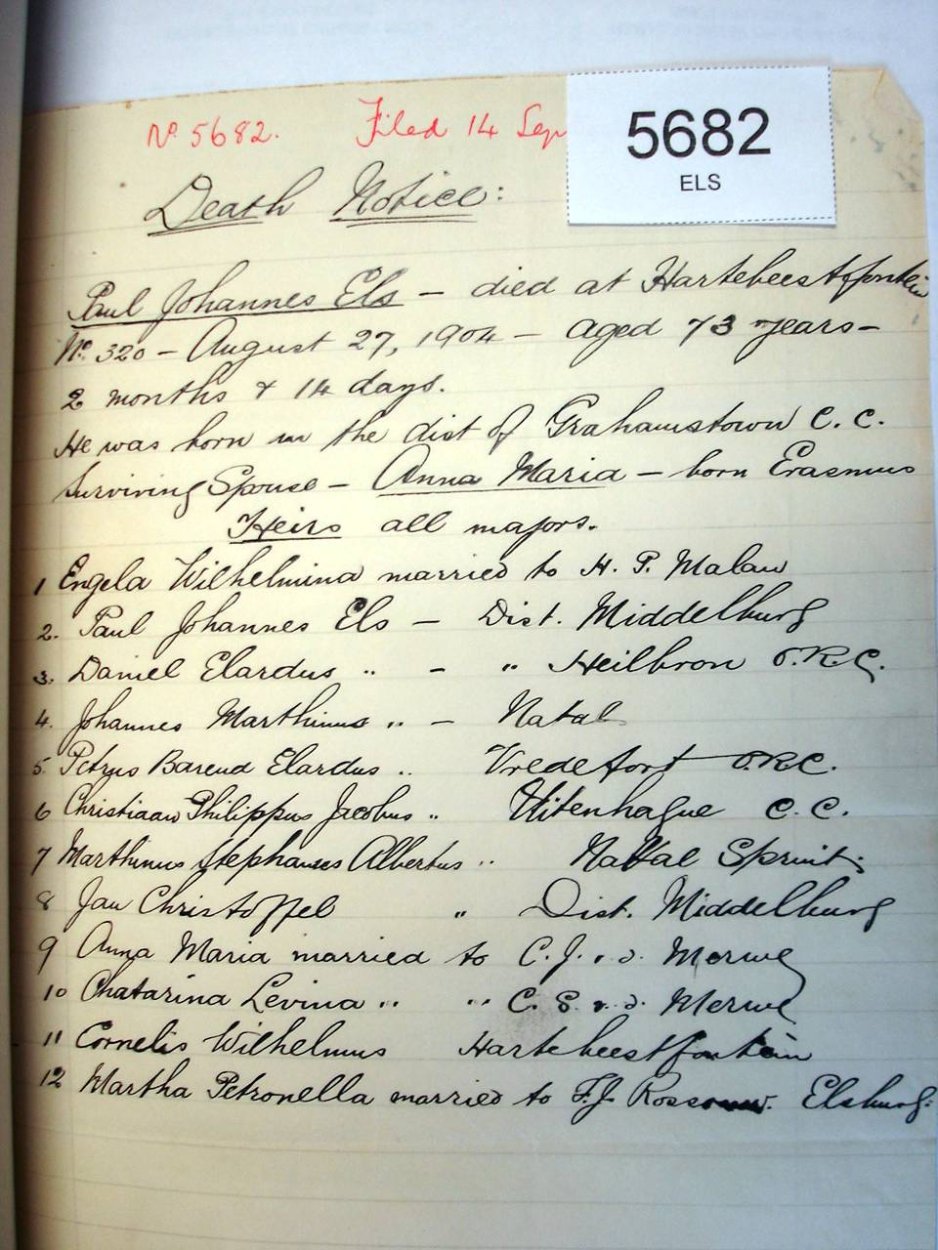 Nº 5682. Filed 14 Sep
5682
ELS
Death Notice:
Paul Johannes Els – died at Hartebeestfontein
Nº 320 – August 27, 1904 – aged 73 years –
2 months & 14 days.
He was born in the dist of Grahamstown C. C.
Surviving Spouse – Anna Maria – born Erasmus
Heirs all majors.
1 Engela Wilhelmina married to H. P. Malan
2. Paul Johannes Els – Dist. Middelburg
3. Daniel Elardus " – " Heilbron O.R.C.
4. Johannes Marthinus " – Natal
5. Petrus Barend Elardus " Vredefort O.R.C.
6 Christiaan Philippus Jacobus " Uitenhague C. C.
7 Marthinus Stephanus Albertus " Natal Spruit.
8 Jan Christoffel " Dist. Middelburg
9 Anna Maria married to C. J. v. d. Merwe
10 Chatarina Levina " " C. S. v. d. Merwe
11 Cornelis Wilhelmus Hartebeestfontein
12 Martha Petronella married to F. J. Rossouw. Elsburg.